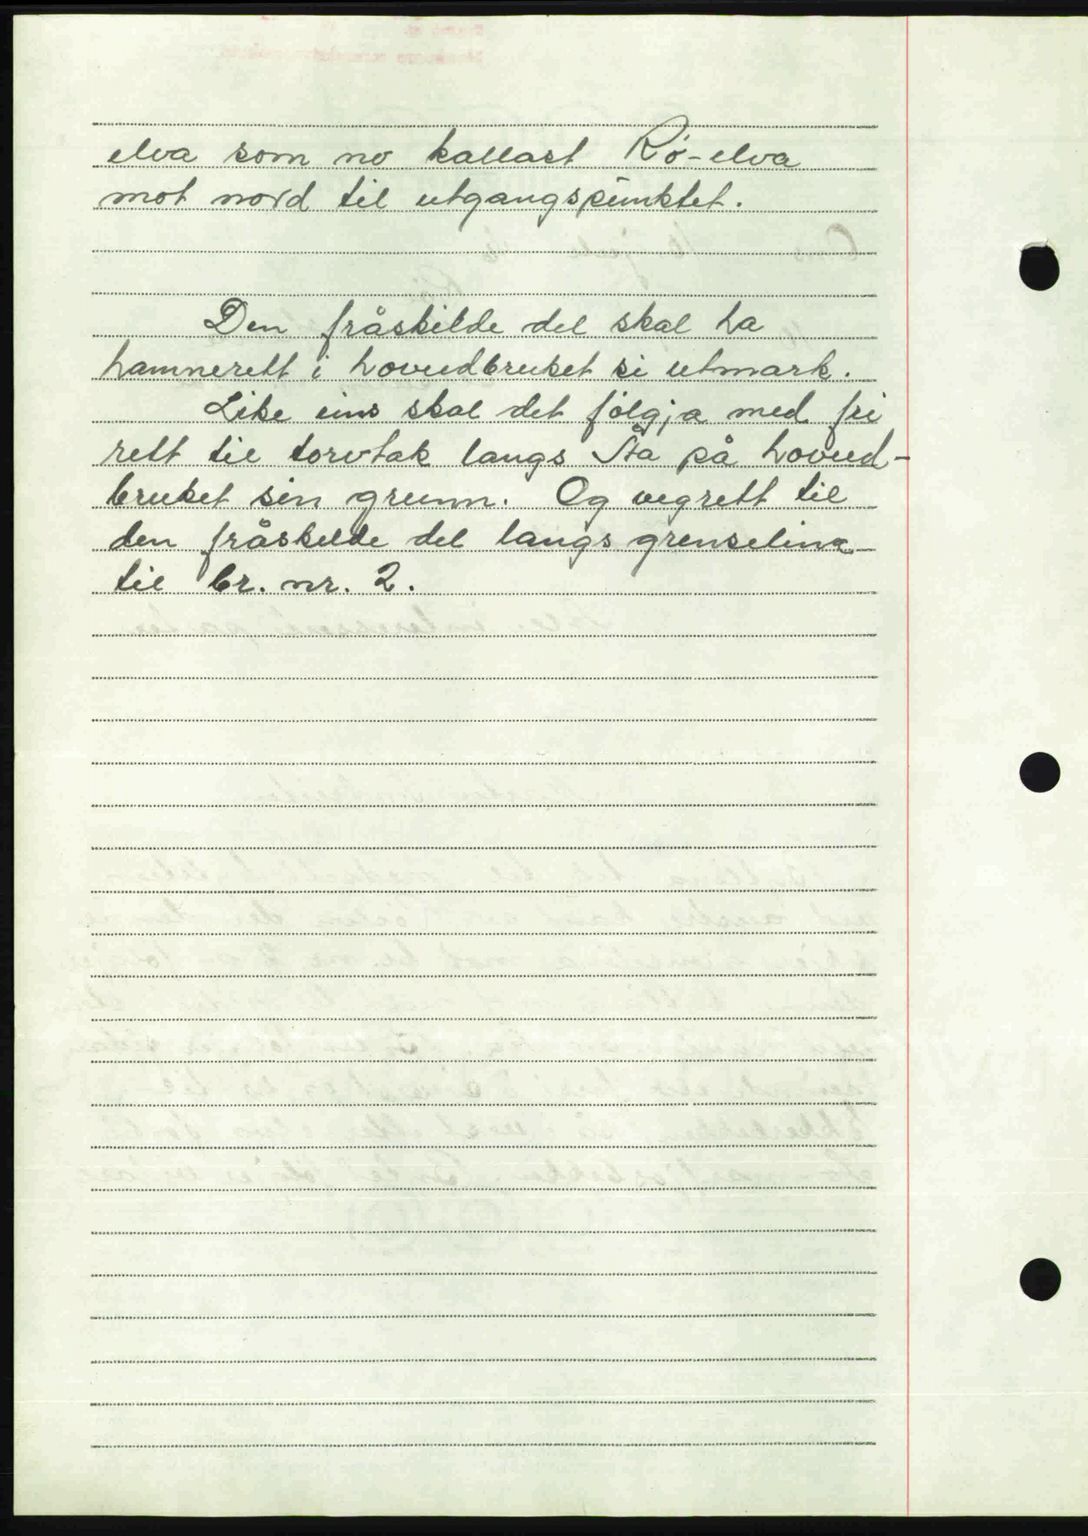 elva som no kallast Rø-elva
mot nord til utgangspunktet.
Den fråskilde del skal ha
hamnerett i hovudbruket si utmark.
Like eins skal det følgja med fri
rett til torvtak langs Åa på hovud-
bruket sin grunn. Og vegrett til
den fråskilde del langs grenselina
til br. nr. 2.